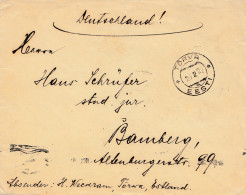 Deutschland!
Herrn
TÕRVA
EESTI
Hans Schrüfer
stud. jur.
Bamberg,
Altenburgerstr. 99
Absender: H. Tõrwa, Estland.